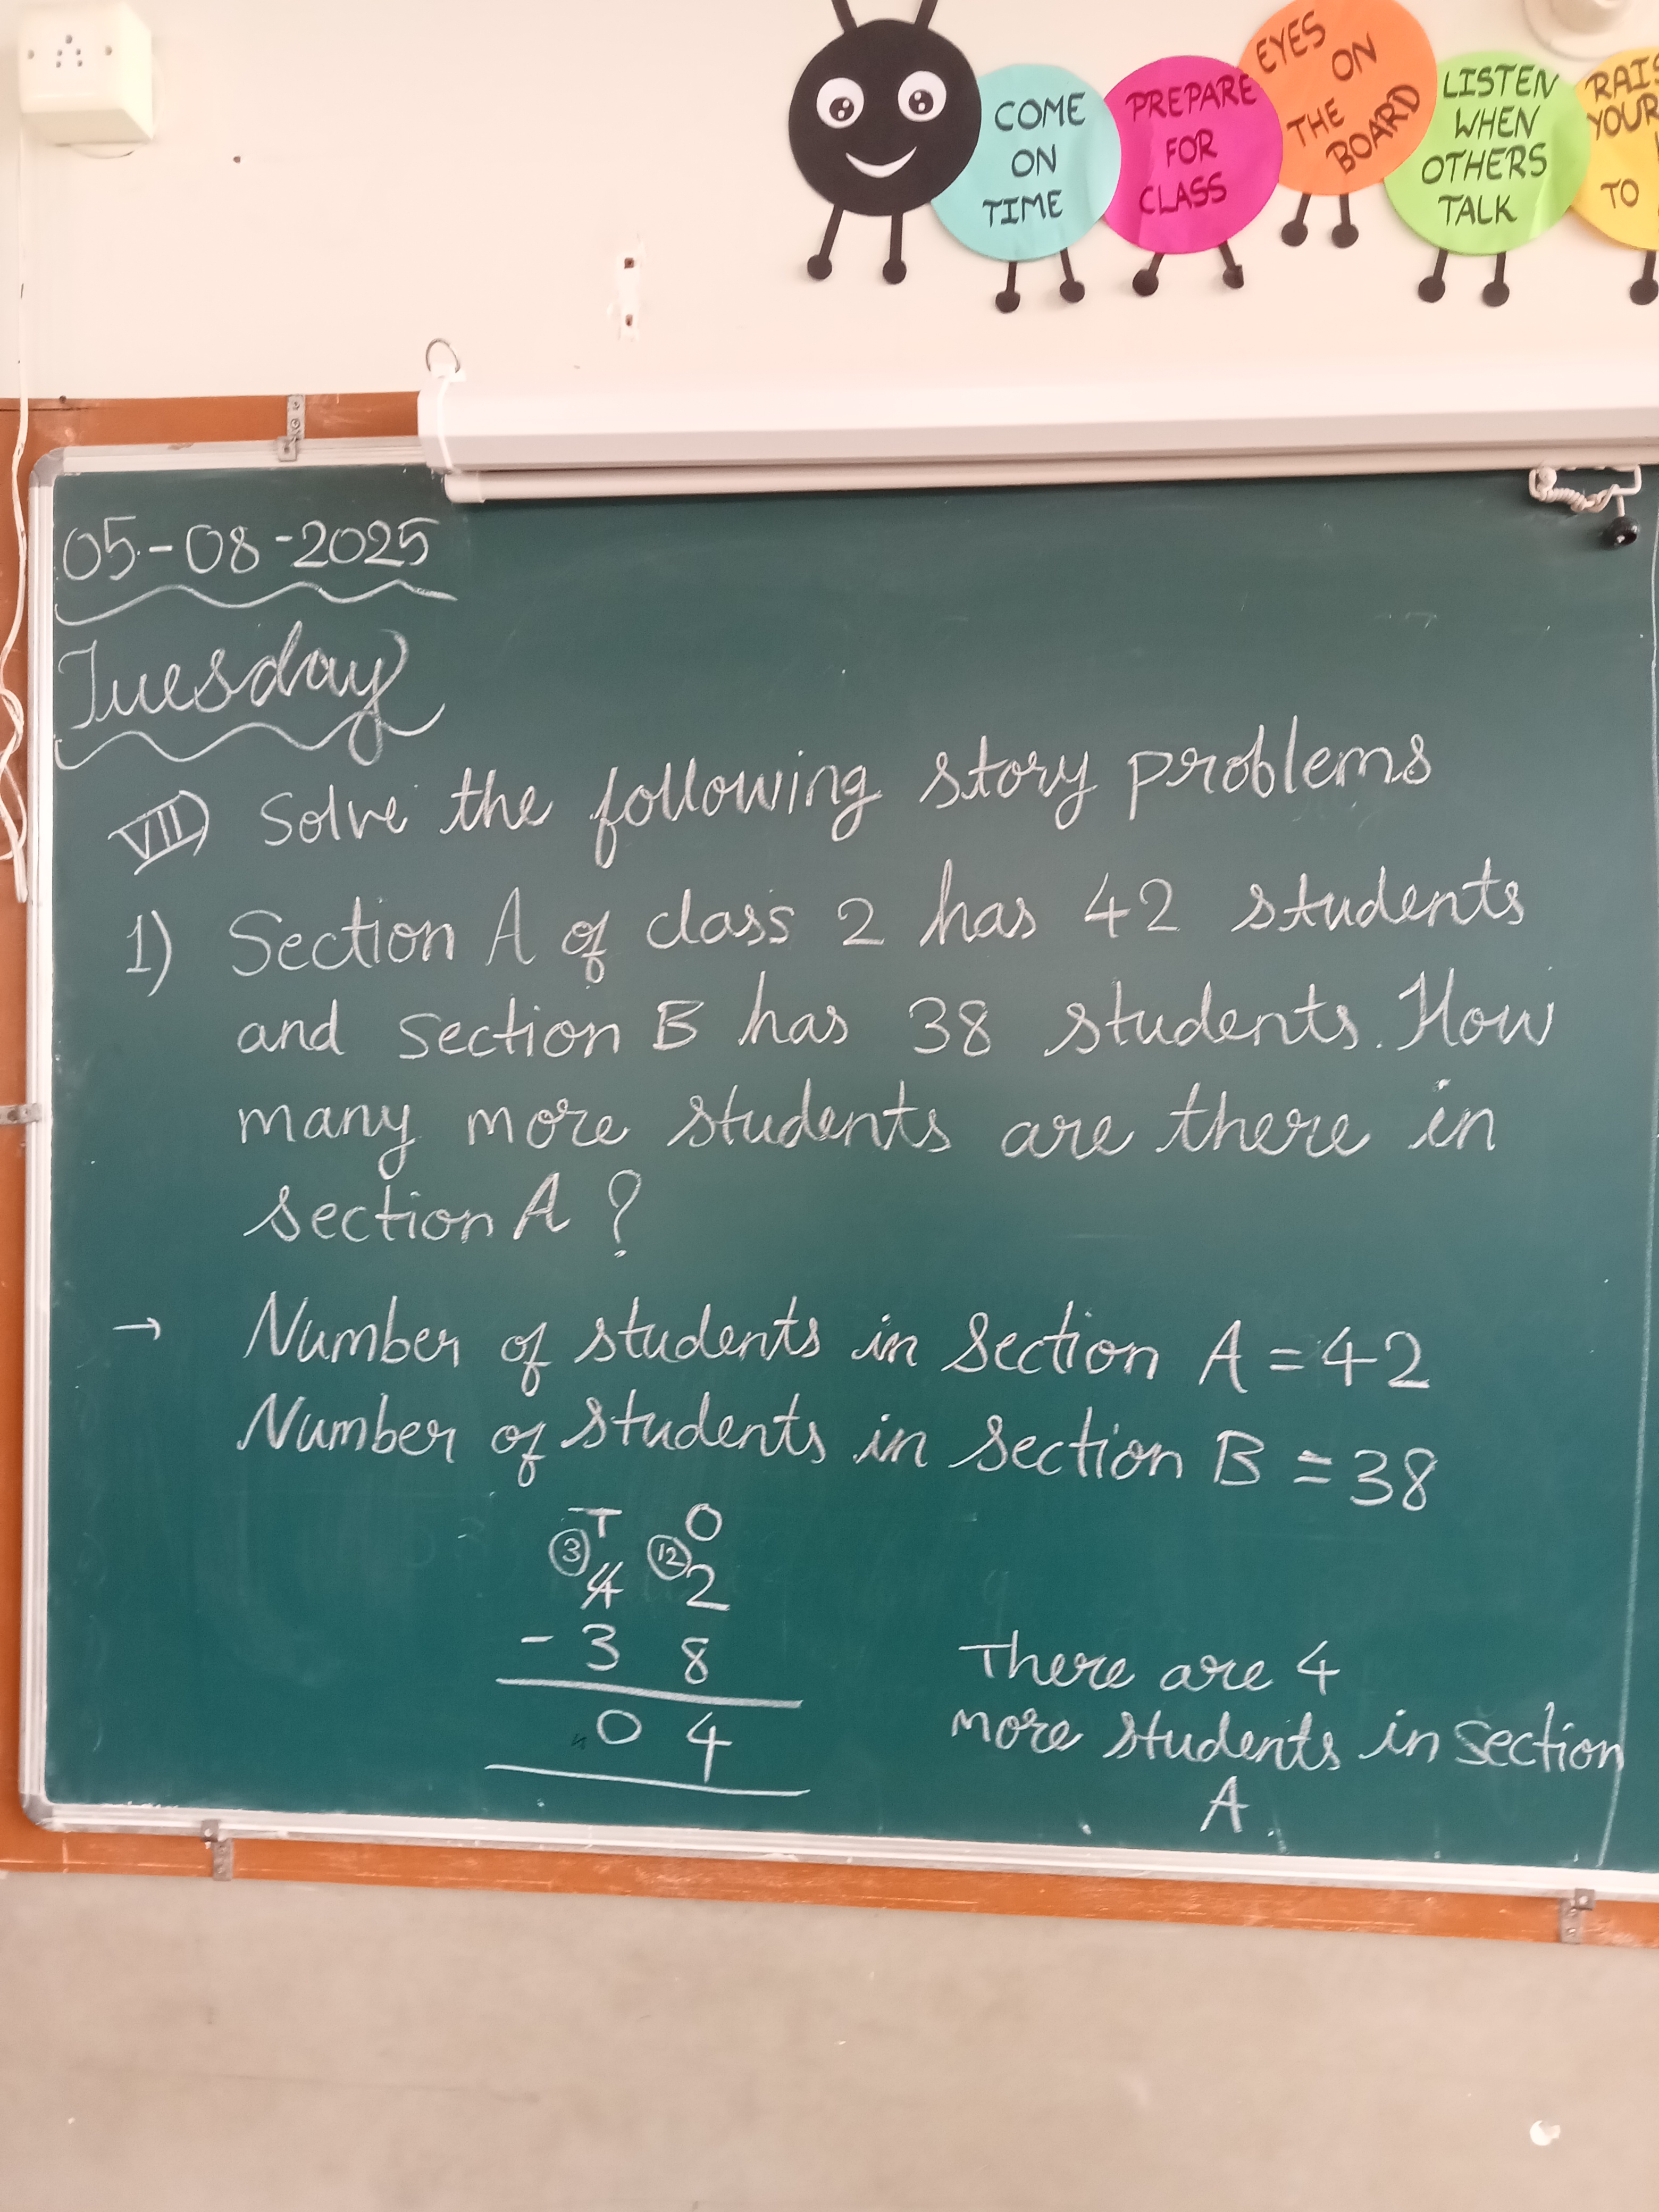 COME
ON
TIME
PREPARE
FOR
CLASS
EYES
ON
THE
BOARD
LISTEN
WHEN
OTHERS
TALK
YOUR
TO
05-08-2025
Tuesday
VII) Solve the following story problems
1) Section A of class 2 has 42 students
and section B has 38 students. How
many more students are there in
section A ?
→ Number of students in section A = 42
Number of students in section B = 38
T O
3 12
4 2
- 3 8
0 4
There are 4
more students in section
A.